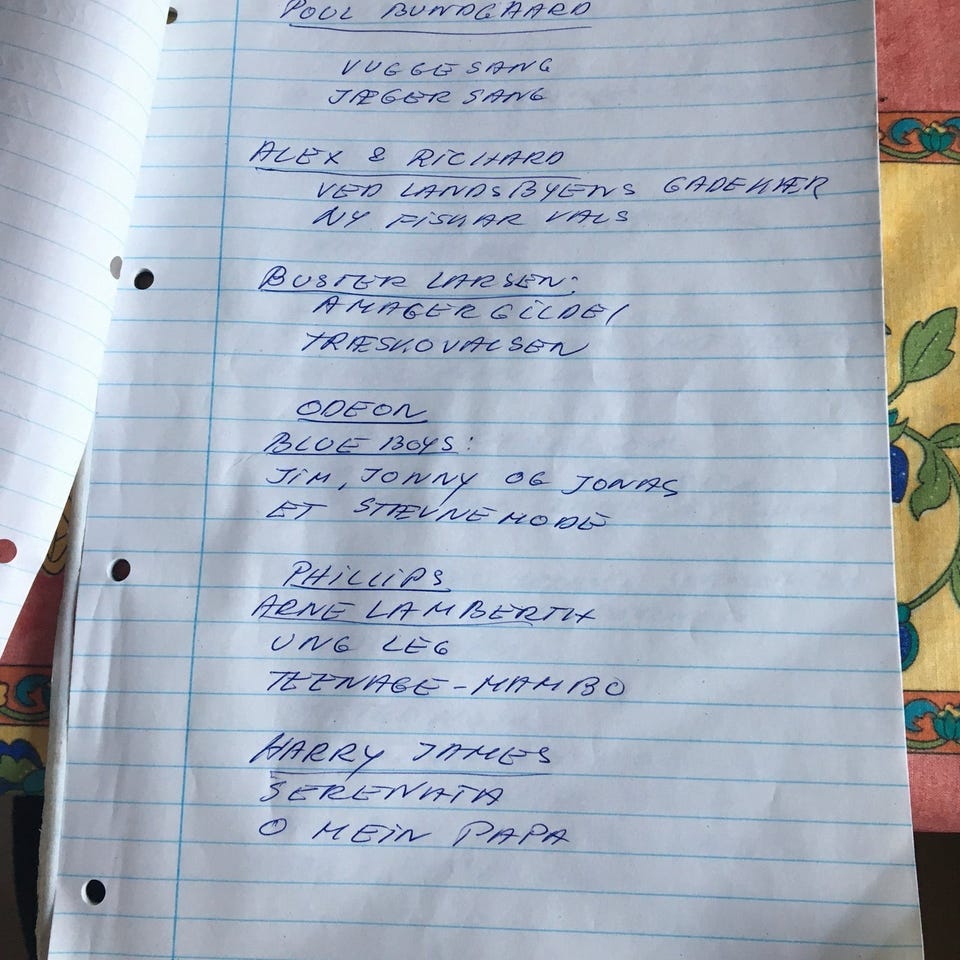 POUL BUNDGAARD
VUGGESANG
JÆGER SANG
ALEX & RICHARD
VED LANDSBYENS GADEKÆR
NY FISKAR VALS
BUSTER LARSEN:
AMAGER GILDE/
TRÆSKOVALSEN
ODEON
BLUE BOYS:
JIM, JONNY OG JONAS
ET STÆVNEMØDE
PHILLIPS
ARNE LAMBERTH
UNG LEG
TEENAGE-MAMBO
HARRY JAMES
SERENATA
O MEIN PAPA